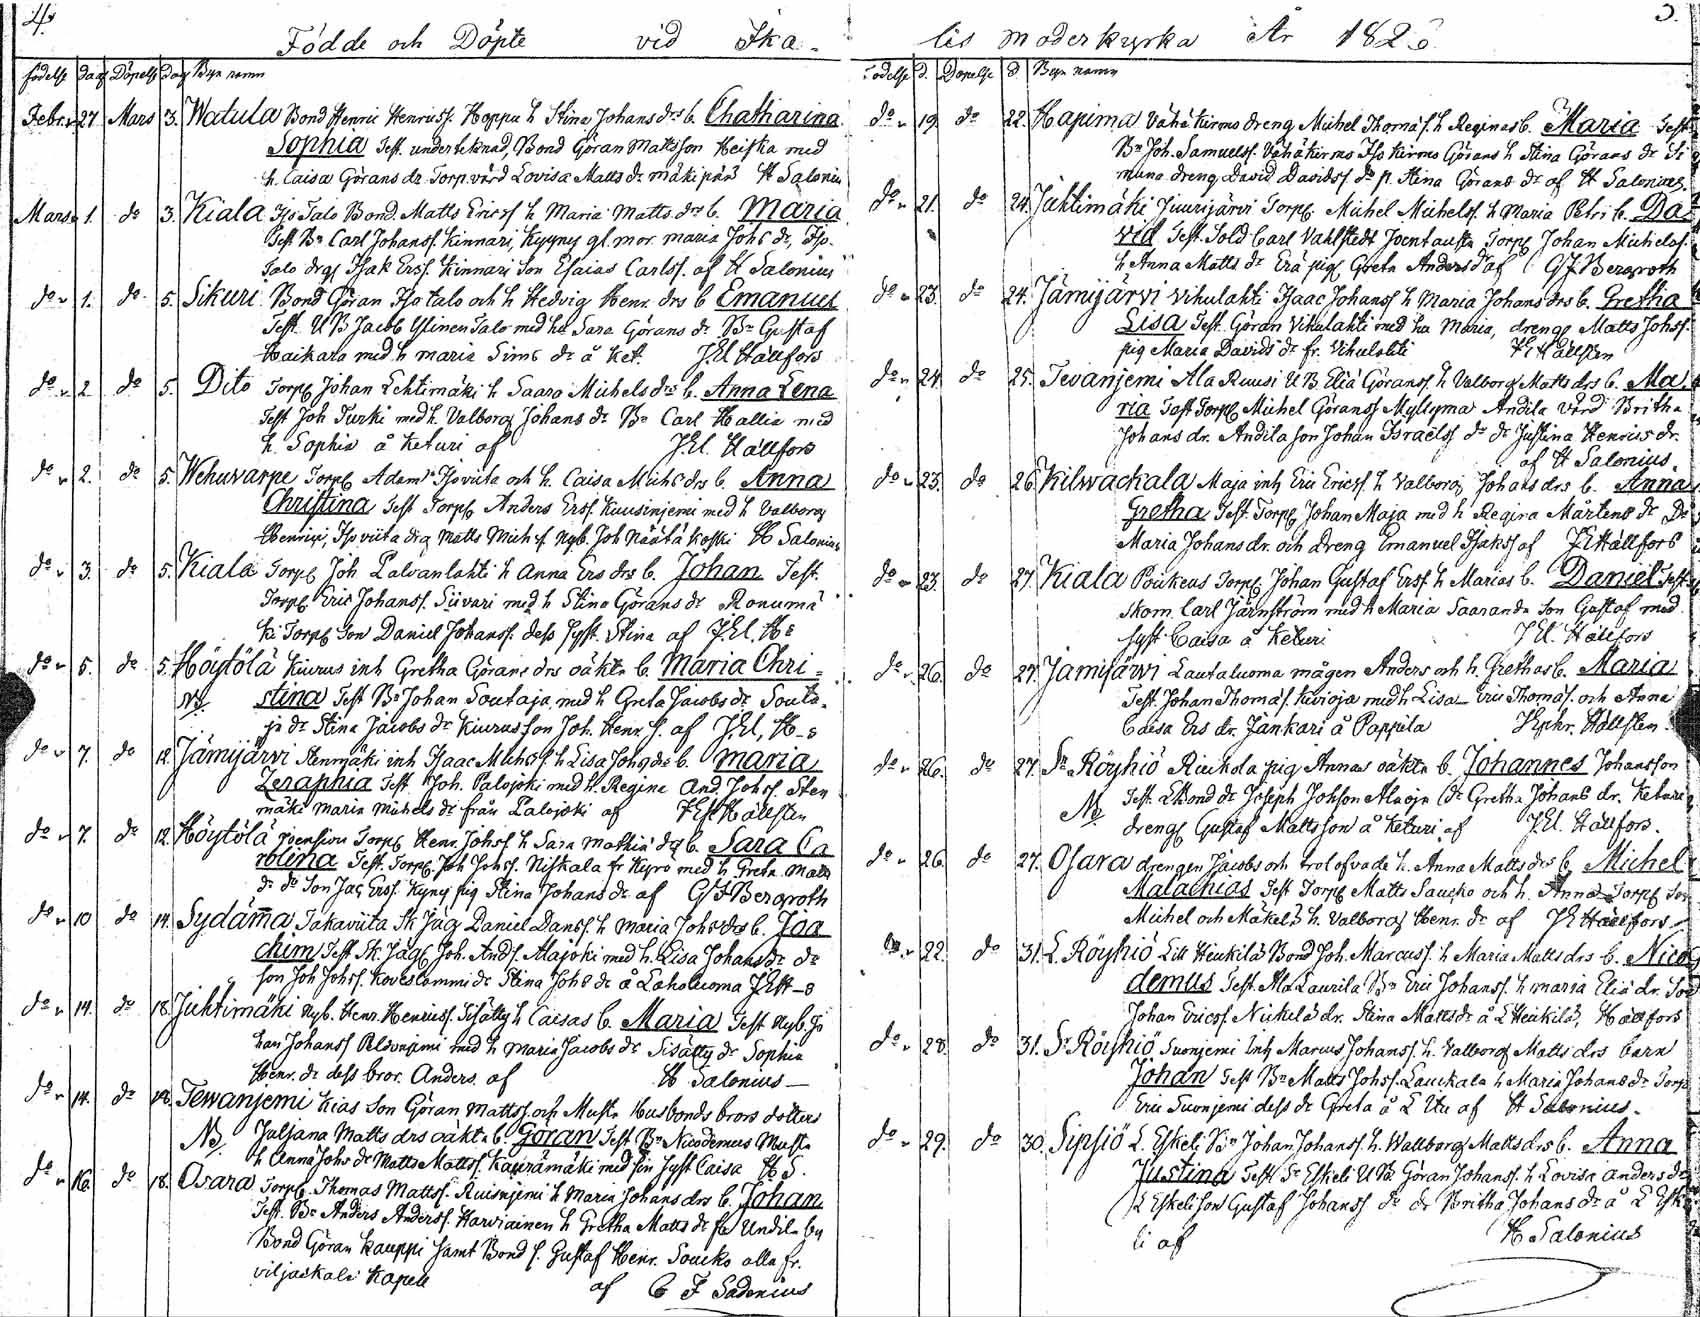 4.
Födde och Döpte vid Ika-
födelse dag Döpelse dag Byn namn
Febr. 27 Mars 3. Watula Bond Henric Henricss. Hoppu h Stina Johans drs b. Chatharina
Sophia Test. underteknad, Bond Göran Mattsson Heiska med
h. Caisa Görans dr Torp. värd Lovisa Matts dr mäki pää H Salonius
Mars 1. do 3. Kiala Iso Talo Bond Matts Ericss h Maria Matts drs b. Maria
Test Bn Carl Johanss. Kinnari, Kyyny gl. mor. maria Johs dr, Iso
Talo drg Isak Erss. Kinnari Son Esaias Carlss. af H Salonius
do 1. do 5. Sikuri Bond Göran Iso talo och h Hedvig Henr. drs b Emanuel
Test. U B Jacob Ylinen Talo med hu Sara Görans dr Bn Gustaf
Haikara med h maria Sims dr å Ket. J El Hällfors
do 2 do 5. Dito Torp Johan Lehtimäki h Saara Michels drs b. Anna Lena
Test Joh Turki med h. Valborg Johans dr Bn Carl Hallia med
h. Sophia å Keturi af J. El. Hällfors
do 2. do 5. Wehuvarpe Torp Adam Isoviita och h. Caisa Michs drs b. Anna
Christina Test Torp Anders Erss. Kuusinjemi med h Valborg
Henrici, Isoviita drg Matts Mich sf Nyb. Joh Näätä koski H Salonius
do 3. do 5. Kiala Torp Joh Palvanlahti h Anna Ers drs b. Johan Test.
Torp Eric Johanss. Siivari med h Stina Görans dr Ronumä
ki Torp Son Daniel Johanss. dess syst. Stina af J. El. Hs
do 5. do 5. Höytölä Kiurus inh Gretha Görans drs oäkta b. Maria Chri=
Nb. stina Test Bn Johan Soutaja med h Greta Jacobs dr Souta-
ja dr Stina Jacobs dr Kiurus son Joh. Henr. s. af J. El, H-s
do 7. do 12. Jämijärvi Stenmäki inh Isaac Michss. h Lisa Johs drs b. Maria
Zeraphia Test Joh. Palojoki med h. Regina And. Johss. Sten
mäki maria Michels dr från Palojoki af Hällsten
do 7. do 12. Höytölä Joensivu Torp Henr. Johss h Sara mathia drs b. Sara Ca
rolina Test. Torp. Joh Johss. Niskala fr Kyrö med h Greta Matts
dr do Son Jac Erss. Kyny pig Stina Johans dr af G F Bergroth
do 10 do 14. Sydänma Takaviita Sk Jäg Daniel Danss. h Maria Johs drs b. Joa
chim Test Sk. Jäg Joh. Ands. Alajoki med h. Lisa Johans dr do
son Joh Johss. Koveslammi dr Stina Johs dr å Laholuoma J El H-s
do 14. do 18. Juhtimäki Nyb. Henr. Henricss. Sisätty h Caisas b. Maria Test Nyb. Jo
han Johanss Peldonjemi med h Maria Jacobs dr Sisätty dr Sophia
Henr. dr dess bror. Anders. af H Salonius
do 14. do 18. Tewanjemi Kias Son Göran Mattss. och Musta Husbonds brors dotters
Nb Juljana Matts drs oäkta b. Göran Test Bn Nicodemus Musta
h Anna Johs dr Matts Mattss. Kaurämäki med sin syst Caisa H S.
do 16. do 18. Osara Torp. Thomas Mattss. Ruisnjemi h Maria Johans drs b. Johan
Test. Bn Anders Anderss. Harviainen h Gretha Matts dr fr Undila by
Bond Göran Kauppi samt Bond s. Gustaf Henr. Soucko alla fr.
viljackala Kapell af C F Sadenius
5.
lis moderkyrka År 1826
födelse d. Dopelse d Byn namn
do 19. do 22. Hapima Vähäkirmo dreng Michel Thomass. h Reginas b. Maria Test
Bn Joh. Samuelss. Vähäkirmo Iso Kirmo Görans h Stina Görans dr Si
muna dreng David Davidss do p. Stina Görans dr af H Salonius
do 21. do 24. Juhtimäki Juurijärvi Torp Michel Michelss. h Maria Petri b. Da
vid Test. Sold Carl Vahlstedt Joentausta Torp Johan Michelss.
h Anna Matts dr Erä pig Greta Anders dr af G F Bergroth
do 23. do 24. Jämijärvi Vihulahti Isaac Johanss h Maria Johans drs b. Gretha
Lisa Test. Göran Vihulahti med hu Maria, dreng Matts Johss.
pig Maria Davids dr fr. Vihulahti Hällsten
do 24. do 25. Tevanjemi Ala Ruusi U B Eliä Göranss. h Valborg Matts drs b. Ma-
ria Test Torp Michel Göranss Myllyma Andila värd Britha
Johans dr. Andila son Johan Israelss do dr Justina Henrics dr.
af H Salonius.
do 23. do 26. Kilwackala Maja inh Eric Ericss. h Valborg Johans drs b. Anna
Gretha Test Torp Johan Maja med h Regina Mårtens dr Do
Maria Johans dr. och dreng Emanuel Isakss af J El Hällfors
do 23. do 27. Kiala Poukeus Torp Johan Gustaf Erss h Marias b. Daniel Test
Skom. Carl Järnström med h Maria Saaranda Son Gustaf med
syst Caisa å Keturi J El. Hällfors
do 26. do 27. Jämijärvi Lautaluoma mågen Anders och h. Grethas b. Maria
Test. Johan Thomass. Kivioja med h Lisa Eric Thomass. och Anna
Caisa Ers dr. Jänkäri å Pappila J Ephr. Hällsten.
do 26. do 27. Sr. Röyhiö Riekola pig Annas oäkta b. Johannes Johansson
Nb Test. Bond dr Joseph Jobsson Alaoja dr Gretha Johans dr. Keturi
dreng Gustaf Mattsson å Keturi af J El. Hällfors.
do 26. do 27. Osara drengen Jacobs och trolofvade h. Anna Matts drs b. Michel
Malachias Test Torp Matts Saucko och h. Anna Torp Son
Michel och Mäkelä h. Valborg Henr. dr af J E Hällfors
22. do 31. L. Röyhiö Lill Heickilä Bond Joh. Marcuss. h Maria Matts drs b. Nico
demus Test. Ala Laurila Bn Eric Johanss. h maria Eliä dr. Son
Johan Ericss. Nickelä dr. Stina Matts dr å L Heickilä, Hällfors
do 28. do 31. Sr. Röyhiö Suonjemi Inh Marcus Johanss. h. Valborg Matts drs barn
Johan Test Bn Matts Johss. Lauckala h Maria Johans dr Torp
Eric Suonjemi dess dr Greta å L Utu af H Salonius.
do 29. do 30. Sipsiö L. Eskeli Bn Johan Johanss. h. Wallborg Matts drs b. Anna
Justina Test Sr Eskeli U B. Göran Johanss. h Lovisa Anders dr
L Eskeli Son Gustaf Johanss do dr Britha Johans dr å L Eske
li af H Salonius